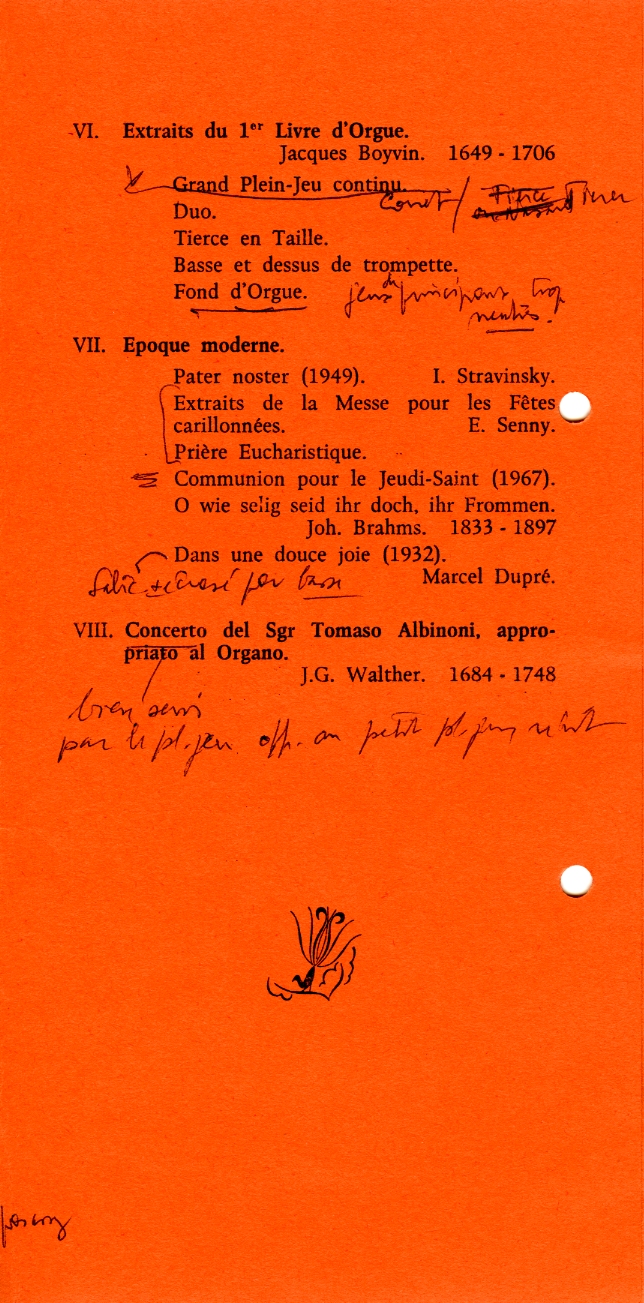 VI. Extraits du 1er Livre d'Orgue.
Jacques Boyvin. 1649 - 1706
Grand Plein-Jeu continu.
Cornet / Tierce Tierce
Duo.
Tierce en Taille.
Basse et dessus de trompette.
Fond d'Orgue. jeux du principaux trop
neutres.
VII. Epoque moderne.
Pater noster (1949). I. Stravinsky.
Extraits de la Messe pour les Fêtes
carillonnées. E. Senny.
Prière Eucharistique.
Communion pour le Jeudi-Saint (1967).
O wie selig seid ihr doch, ihr Frommen.
Joh. Brahms. 1833 - 1897
Dans une douce joie (1932).
écrasé par basse Marcel Dupré.
VIII. Concerto del Sgr Tomaso Albinoni, appro-
priato al Organo.
J.G. Walther. 1684 - 1748
bien servi
par le pl. jeu opp. au petit pl. jeu